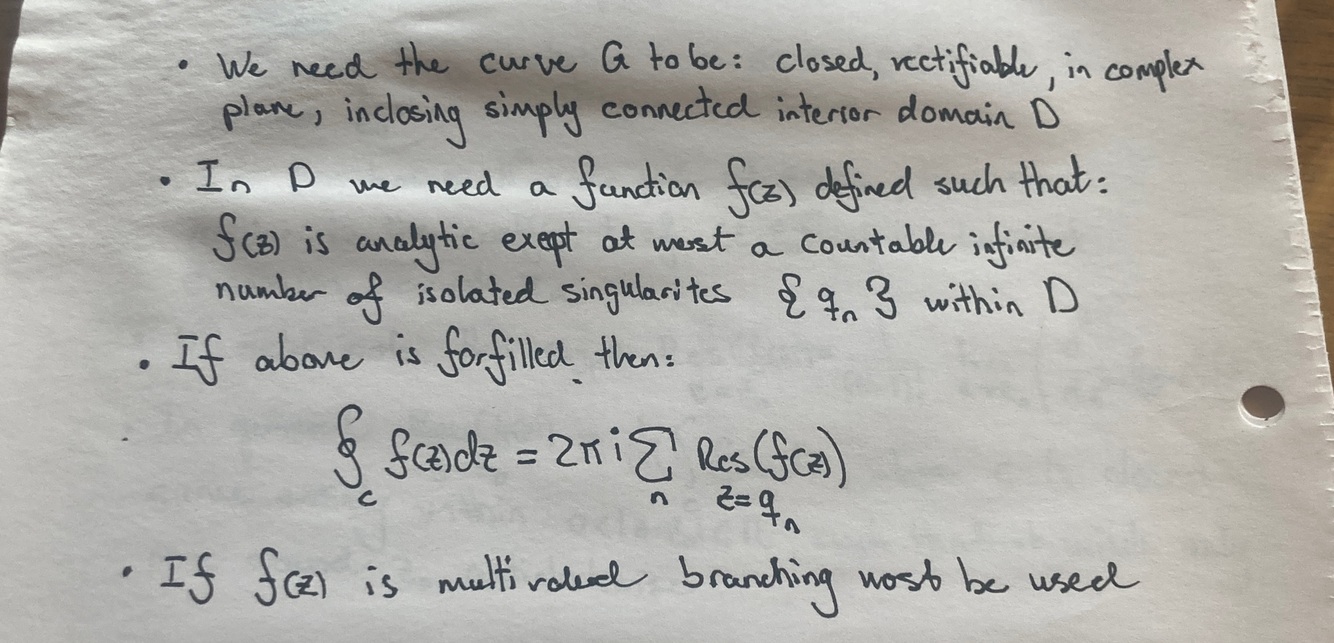 • We need the curve G to be: closed, rectifiable, in complex
plane, inclosing simply connected interior domain D
• In D we need a function f(z) defined such that:
f(z) is analytic exept at most a countable infinite
number of isolated singularites { q_n } within D
• If above is forfilled then:
∮_c f(z)dz = 2πi ∑_n Res_{z=q_n}(f(z))
• If f(z) is multivalued branching must be used